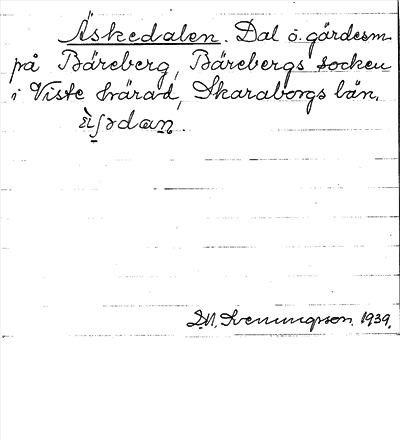 Äskedalen. Dal o. gärdesm
på Bäreberg, Bärebergs socken
i Viste härad, Skaraborgs län.
D.N. Sveningsson. 1939.